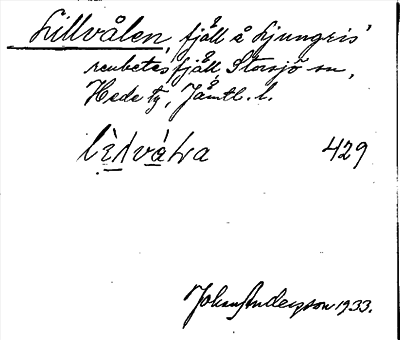 Lillvålen, fjäll å Ljungris'
renbetesfjäll, Storsjö sn,
Hede tg, Jämtl. l.
429
Johan Andersson 1933.